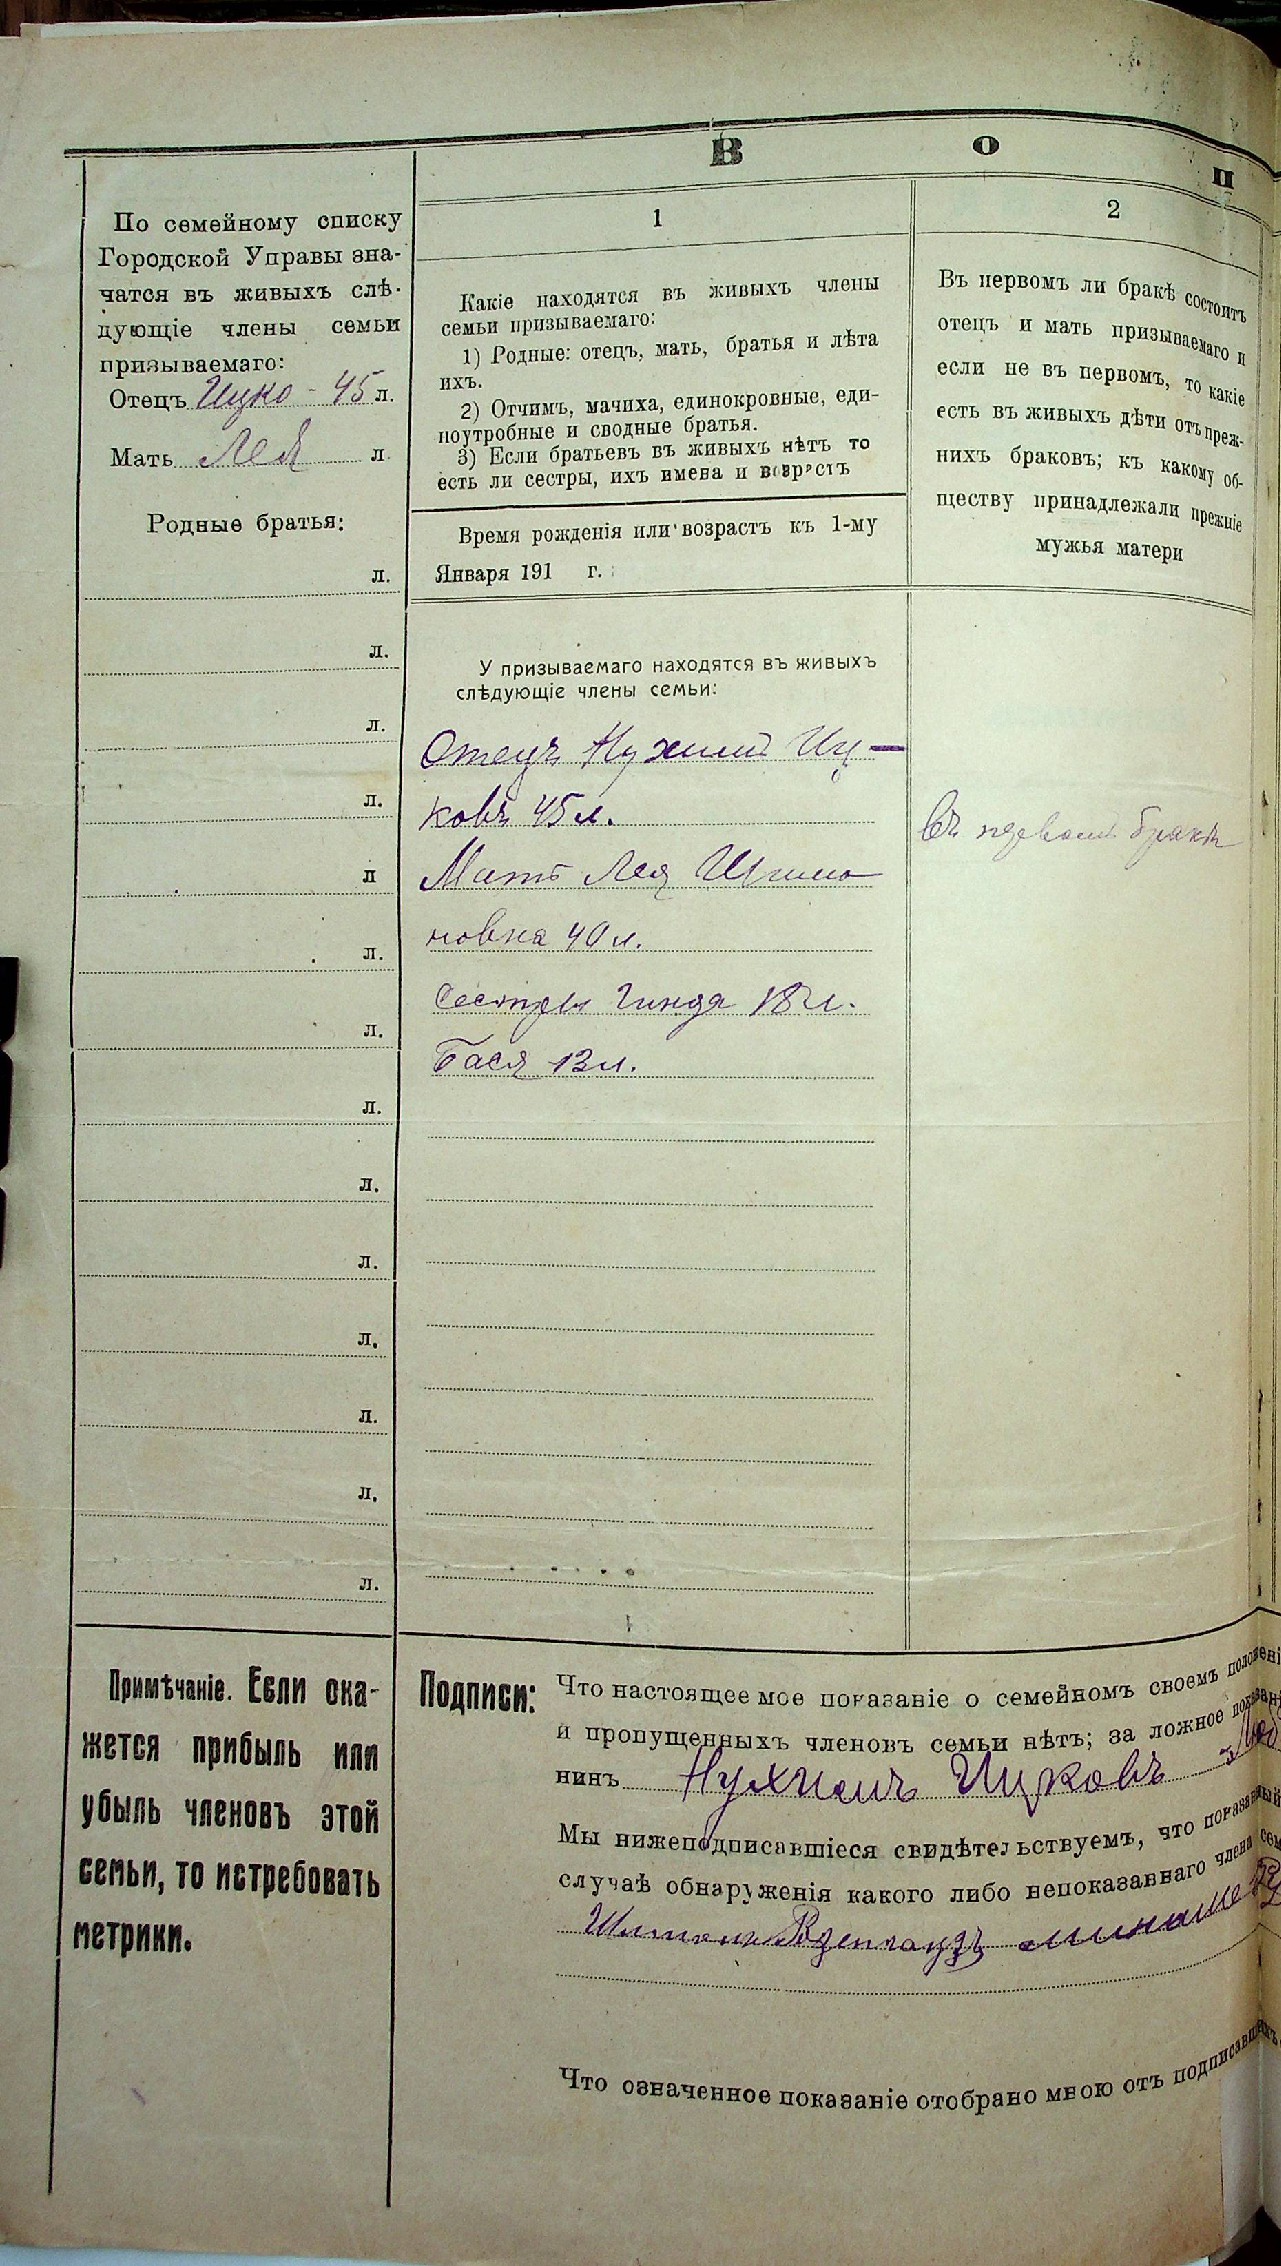 В о п
По семейному списку
Городской Управы зна-
чатся въ живыхъ слѣ-
дующіе члены семьи
призываемаго:
Отецъ Ицко - 45 л.
Мать Лея л.
Родные братья:
л.
л.
л.
л.
л
л.
л.
л.
л.
л.
л.
л.
л.
л.
1
Какіе находятся въ живыхъ члены
семьи призываемаго:
1) Родные: отецъ, мать, братья и лѣта
ихъ.
2) Отчимъ, мачиха, единокровные, еди-
ноутробные и сводные братья.
3) Если братьевъ въ живыхъ нѣтъ то
есть ли сестры, ихъ имена и возрастъ
Время рожденія или возрастъ къ 1-му
Января 191 г.
У призываемаго находятся въ живыхъ
слѣдующіе члены семьи:
Отецъ Нухимъ Иц-
ковъ 45 л.
Мать Лея Шимо
новна 40 л.
Сестры Гинда 18 л.
Бася 13 л.
2
Въ первомъ ли бракѣ состоитъ
отецъ и мать призываемаго и
если не въ первомъ, то какіе
есть въ живыхъ дѣти отъ преж-
нихъ браковъ; къ какому об-
ществу принадлежали прежніе
мужья матери
Въ первомъ бракѣ
Примѣчаніе. Если ока-
жется прибыль или
убыль членовъ этой
семьи, то истребовать
метрики.
Подписи:
Что настоящее мое показаніе о семейномъ своемъ положені
и пропущенныхъ членовъ семьи нѣтъ; за ложное показані
нинъ Нухимъ Ицковъ
Мы нижеподписавшіеся свидѣтельствуемъ, что показанный
случаѣ обнаруженія какого либо непоказаннаго члена сем
Что означенное показаніе отобрано мною отъ подписавши